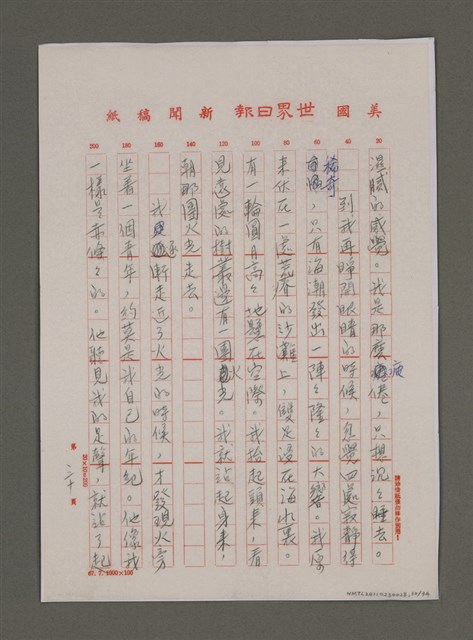 美國世界日報新聞稿紙
20
40
60
80
100
120
140
160
180
200
溫膩的感覺。我是那麼疲倦，只想沉々睡去。
到我再睜開眼睛的時候，忽覺四處寂靜得
稀奇，只有海潮發出一陣々隆々的大響。我原
來伏在一處荒瘠的沙灘上，雙足浸在海水裏。
有一輪圓月高々地懸在空際。我抬起頭來，看
見遠處的樹叢邊有一團火光。我就站起身來，
朝那團火光走去。
我逐漸走近了火光的時候，才發現火旁
坐着一個青年，約莫是我自己的年紀。他像我
一樣是赤條々的。他聽見我的足聲，就站了起
第二十頁
20×10=200
67. 7. 1000×100